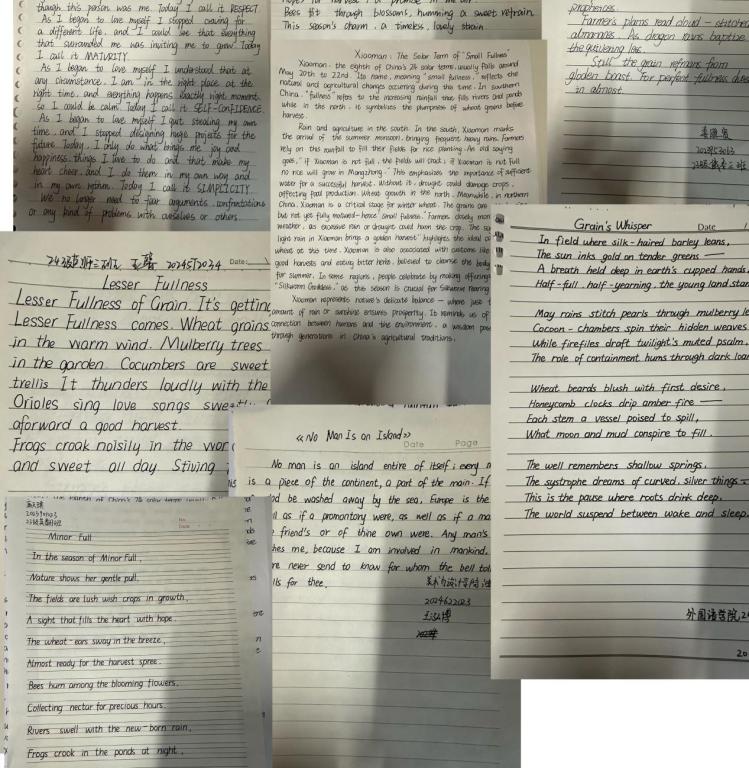 though this person was me. Today I call it RESPECT
As I began to love myself I stopped craving for
a different life, and I could see that everything
that surrounded me was inviting me to grow. Today
I call it MATURITY.
As I began to love myself I understood that at
any circumstance, I am in the right place at the
right time, and everything happens exactly right moment.
so I could be calm. Today I call it SELF-CONFIDENCE.
As I began to love myself I quit stealing my own
time, and I stopped designing huge projects for the
future. Today, I only do what brings me joy and
happiness, things I love to do and that make my
heart cheer, and I do them in my own way and
in my own rhythm. Today I call it SIMPLICITY.
We no longer need to fear arguments, confrontations
or any kind of problems with ourselves or others.
Bees through blossoms, humming a sweet refrain.
This season's charm, a timeless, lovely strain.
prophecies.
Farmer's plams read aloud - stitched
almanacs. As dragon rains baptize
the
Still the grain refrains from
gloden boast. For perfect fullness
in almost.
Xiaoman: The Solar Term of "Small Fullness"
Xiaoman, the eighth of China's 24 solar terms, usually falls around
May 20th to 22nd. Its name, meaning "small fullness," reflects the
natural and agricultural changes occurring during this time. In southern
China, "fullness" refers to the increasing rainfall that fills rivers and ponds
while in the north, it symbolizes the plumpness of wheat grains before
harvest.
Rain and agriculture in the south. In the south, Xiaoman marks
the arrival of the summer monsoon, bringing frequent heavy rains. Farmers
rely on this rainfall to fill their fields for rice planting. An old saying
goes, "if Xiaoman is not full, the fields will crack; if Xiaoman is not full
no rice will grow in Mangzhong." This emphasizes the importance of sufficient
water for a successful harvest. Without it, drought could damage crops,
affecting food production. Wheat growth in the north. Meanwhile, in northern
China, Xiaoman is a critical stage for wheat. The grains are
but not yet fully matured—hence "Small fullness." Farmers closely
weather, as excessive rain or drought could harm the crop. The
light rain in Xiaoman brings a golden harvest" highlights the ideal
wheat at this time. Xiaoman is also associated with customs like
good harvests and eating bitter herbs, believed to cleanse the body
for summer. In some regions, people celebrate by making offerings
"Silkworm Goddess," as the season is crucial for silkworm rearing
Xiaoman represents nature's delicate balance — where just
amount of rain or sunshine ensures prosperity. It reminds us of
connection between humans and the environment, a wisdom
through generations in China's agricultural traditions.
Grain's Whisper Date
In field where silk-haired barley leans,
The sun inks gold on tender greens —
A breath held deep in earth's cupped hands,
Half-full, half-yearning, the young land
May rains stitch pearls through mulberry
Cocoon-chambers spin their hidden weaves.
While firefiles draft twilight's muted psalm,
The role of containment hums through dark
Wheat beards blush with first desire,
Honeycomb clocks drip amber fire —
Each stem a vessel poised to spill,
What moon and mud conspire to fill.
The well remembers shallow springs,
The systrophe dreams of curved, silver things-
This is the pause where roots drink deep,
The world suspend between wake and sleep.
外国语学院
20
2024512034 Date:
Lesser Fullness
Lesser Fullness of Grain. It's getting
Lesser Fullness comes. Wheat grains
in the warm wind. Mulberry trees
in the garden. Cocumbers are sweet
trellis It thunders loudly with the
Orioles sing love songs
aforward a good harvest.
Frogs croak noisily in the
and sweet all day.
《No Man Is an Island》
Date Page
No man is an island entire of itself; every
is a piece of the continent, a part of the main. If
be washed away by the sea, Europe is the
as if a promontory were, as well as if a
friend's or of thine own were. Any man's
me, because I am involved in mankind.
never send to know for whom the bell
for thee.
Minor Full
In the season of Minor Full,
Nature shows her gentle pull.
The fields are lush wish crops in growth,
A sight that fills the heart with hope.
The wheat-ears sway in the breeze,
Almost ready for the harvest spree.
Bees hum among the blooming flowers.
Collecting nectar for precious hours.
Rivers swell with the new-born rain,
Frogs crook in the ponds at night,